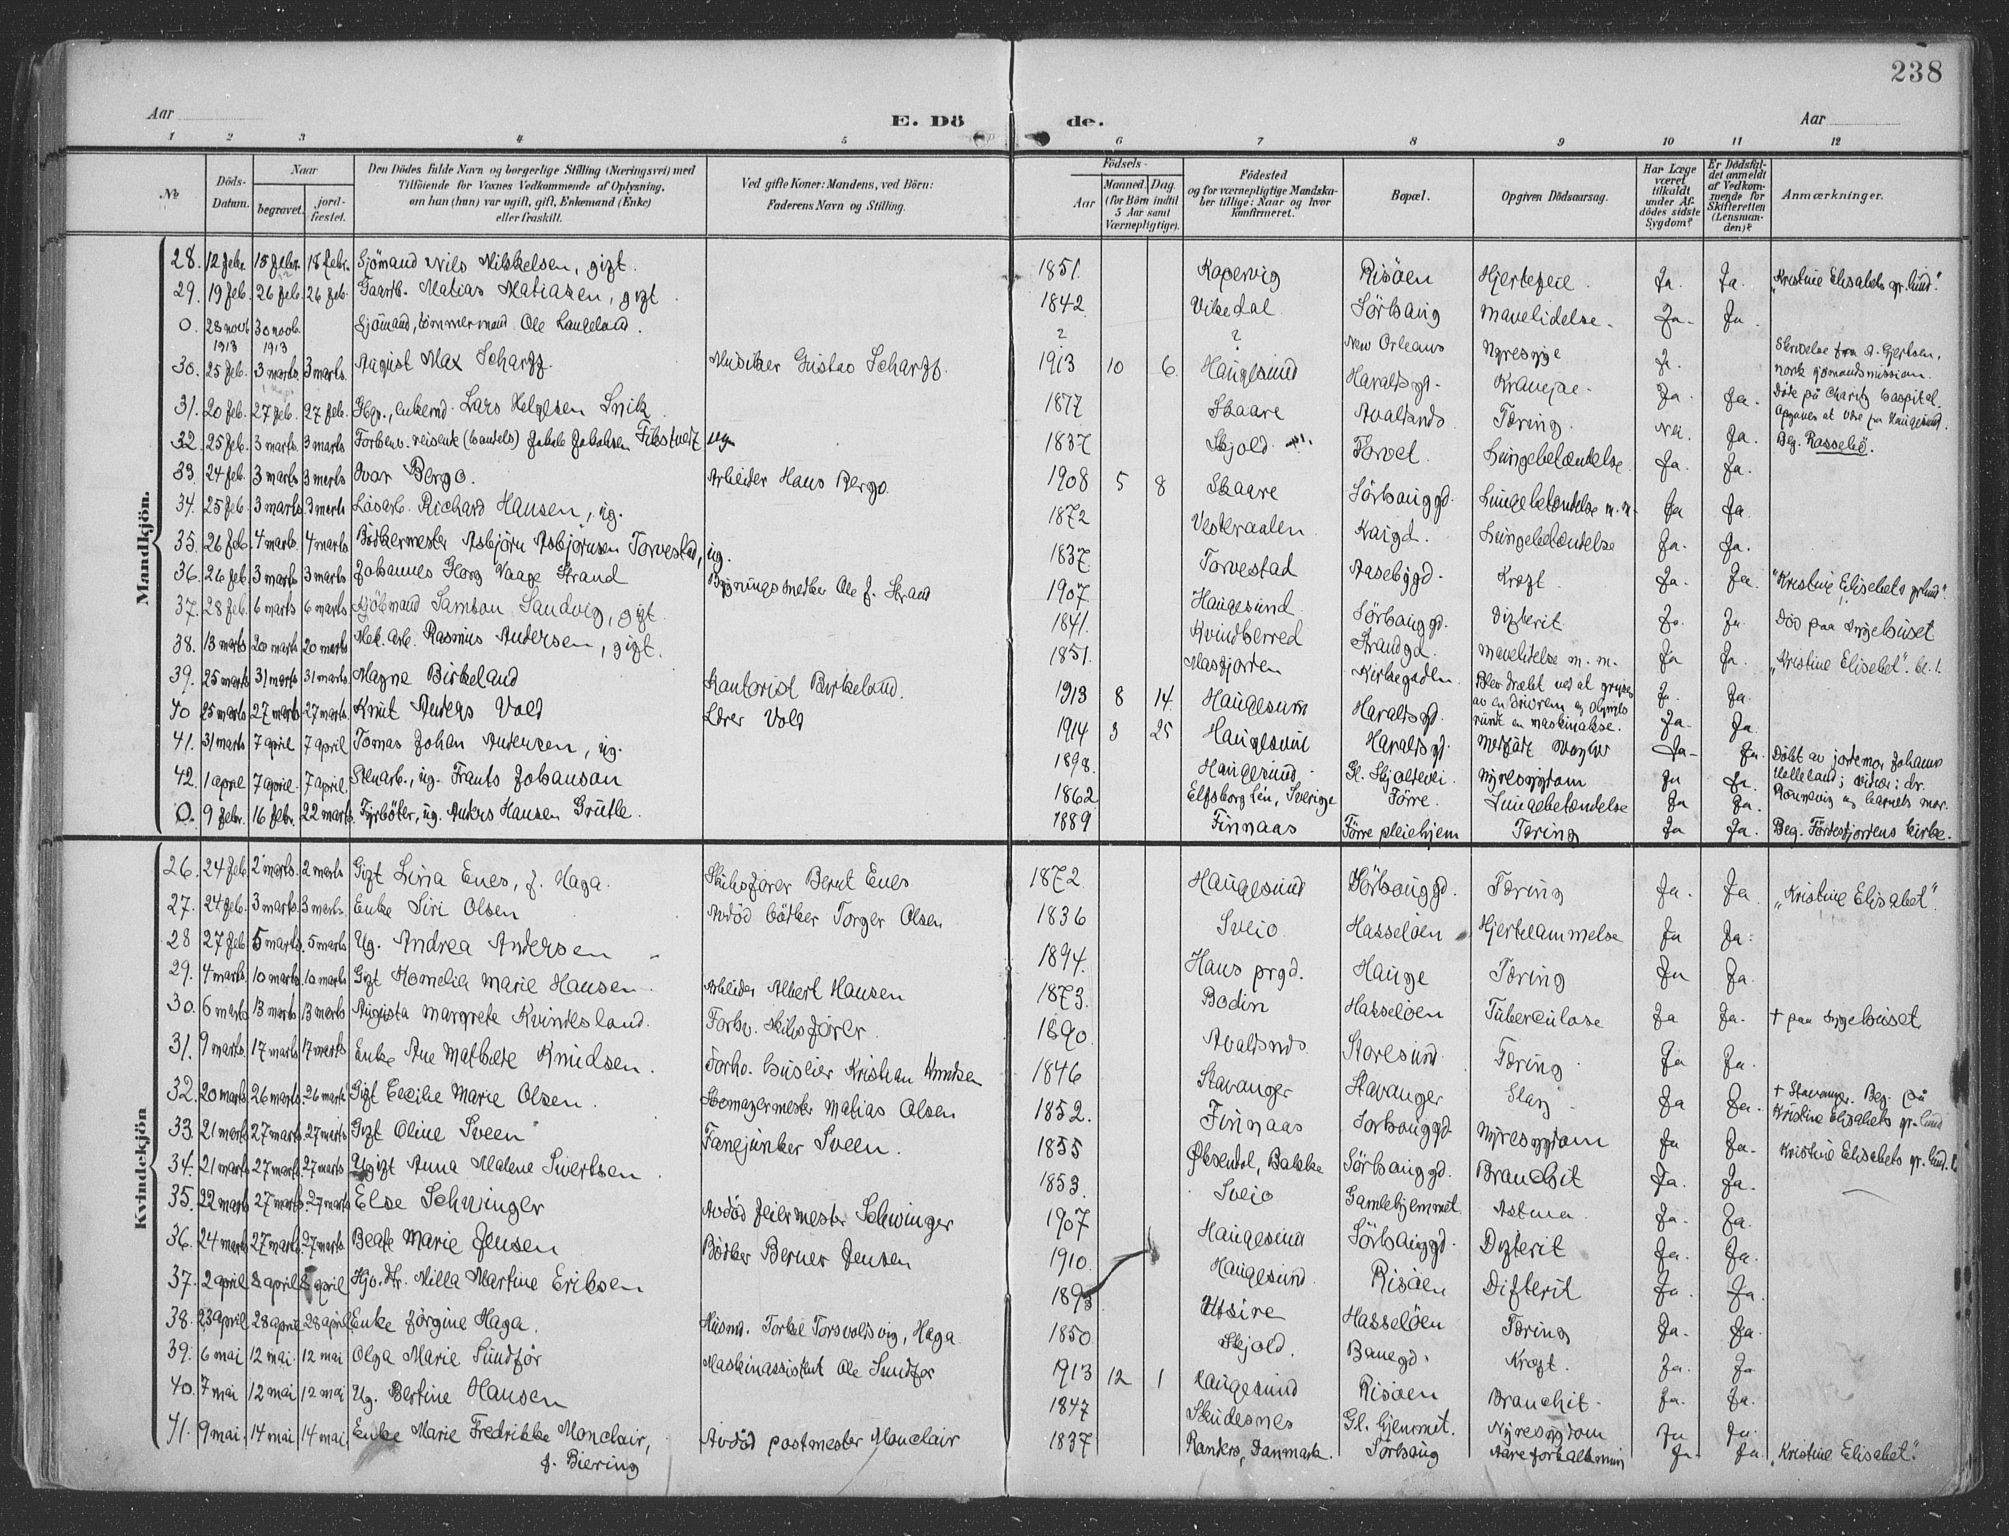 238
Aar
E. Dö de.
Aar
1 2 3 4 5 6 7 8 9 10 11 12
No
Döds-Datum.
Naar
begravet.
jordfæstet.
Den Dödes fulde Navn og borgerlige Stilling (Næringsvei) med Tilföiende for Voxnes Vedkommende af Oplysning, om han (hun) var ugift, gift, Enkemand (Enke) eller fraskilt.
Ved gifte Koner: Mandens, ved Börn: Faderens Navn og Stilling.
Födsels-
Aar
Maaned. Dag. (for Börn indtil 5 Aar samt Værnepligtige).
Födested og for værnepligtige Mandskaber tillige: Naar og hvor konfirmeret.
Bopæl.
Opgiven Dödsaarsag.
Har Læge været tilkaldt under Afdödes sidste Sygdom?
Er Dödsfaldet anmeldt af Vedkommende for Skifteretten (Lensmanden)?
Anmærkninger.
Mandkjön.
28. 12 febr. 18 febr. Sjömand Nils Mikkelsen, gift. 1851. Kopervig Risöen Hjertefeil. Ja. Ja. "Kristine Elisabets gr.lund".
29. 19 feb. 26 feb. 26 feb. Gaarb. Matias Matiasen, gift 1842 Vikedal Sörhaug Mavelidelse. Ja. Ja.
0. 28 novb 1913 30 novb. 1913 Sjömand, tömmermand Ole Langeland. ? ? New Orleans Nyresyge J. Skrivelse fra A. Gjertsen, norsk sjömandsmission. Döde på Charity hospital. Opgaves at vere fra Haugesund.
30. 25 feb. 3 marts. 3 marts. August Max Scharff. Musiker Gustav Scharff. 1913 10 6 Haugesund Haraldsgt. Ja. Ja.
31. 20 feb. 27 feb. 27 feb. Hgr., enkemd. Lars Helgesen Snik 1877 Skaare Avaldsnes Tæring. Nei. Ja. Beg. Rossebö.
32. 25 feb. 3 marts 3 marts Forhenv. reisende (handels) Jakob Jakobsen Fikstvedt 1837 Skjold Torvet Lungebetændelse. Ja. Ja.
33. 24 feb. 3 marts 3 marts Ivar Bergo. Arbeider Hans Bergo 1908 5 8 Skaare Sörhauggd. Lungebetændelse m.m. Ja Ja.
34. 25 feb. 3 marts 3 marts Lösarb. Richard Hansen, ug. 1872 Vesteraalen Kaigd. Lungebetændelse Ja. Ja.
35. 26 feb. 4 marts. 4 marts Bödkermester Asbjörn Asbjörnsen Torvestad, ug. 1837 Torvestad Aasebygd. Kræft. Ja. Ja. "Kristine Elisebets grlund".
36. 26 feb. 3 marts 3 marts Johannes Georg Vaage Strand Bygningsmester Ole J. Strand 1907 Haugesund. Sörhauggd. Difterit Ja. Ja. Död paa sygehuset
37. 28 feb. 6 marts 6 marts Sjöbmand Samson Sandvig, gift. 1841. Kvindherred Strandgd. Mavelidelse m. m. Ja Ja. "Kristine Elisebet". bl. 1.
38. 13 marts 20 marts 20 marts Mek. arb. Rasmus Andersen, gift. 1851. Masfjorden Kirkegaden. Blev dræbt ved at gribes av en drivrem og slynges rundt en maskinakse. Ja. Ja.
39. 25 marts 31 marts 31 marts. Magne Birkeland Kantorist Birkeland. 1913 8 14 Haugesund Haraldsgd. Ja. Ja.
40 25 marts 27 marts 27 marts. Knut Anders Vold Lærer Vold 1914 3 25 Haugesund Haraldsgd. Medfödt Ja. Ja. Döbt av jordemor Johanne Helleland; vidner: dr. Rönnevig og barnets mor.
41. 31 marts 7 april 7 april Tomas Johan Andersen, ug. 1898. Haugesund. Gl. Skjoldevei. Nyresygdom Ja Ja.
42. 1 april 7 april. 7 april. Stenarb., ug. Frants Johansson 1862 Elfsborg län, Sverige Förre. Lungebetændelse Ja Ja.
0. 9 febr. 16 febr. 22 marts Fyrböter, ug. Anders Hansen Grutle. 1889 Finnaas Förre pleiehjem Tæring Ja Ja. Beg. Fördesfjordens kirke.
Kvindekjön
26. 24 feb. 2 marts. 2 marts Gift Lina Enes, f. Haga. Skibsförer Bernt Enes 1872. Haugesund Sörhauggd. Tæring Ja. Ja. "Kristine Elisabet".
27. 24 feb. 3 marts. 3 marts. Enke Siri Olsen Avdöd bödker Torger Olsen 1836 Sveio Hasselöen Hjertelammelse Ja Ja.
28 27 feb 5 marts. 5 marts Ug. Andrea Andersen 1894. Haus prgd. Hauge Tæring Ja Ja.
29. 4 marts. 10 marts. 10 marts. Gift Kornelia Marie Hansen. Arbeider Albert Hansen 1873. Bodin Hasselöen Tuberculose Ja Ja. † paa sygehuset
30. 6 marts 13 marts 13 marts Augusta Margrete Kvindesland. Forhv. skibsförer. 1890. Avaldsnes Storesund. Tæring Ja Ja.
31. 9 marts. 17 marts 17 marts Enke Ane Mathilde Knudsen. Forhv. Kristian Knudsen 1846 Stavanger Stavanger Slag Ja Ja. † Stavanger. Beg. på Kristine Elisabets gr.lund
32. 20 marts 26 marts. 26 marts Gift Cecilie Marie Olsen. Skomagermester Matias Olsen 1852. Finnaas Sorhauggd Nyresygdom Ja Ja. Kristine Elisabets gr.lund.
33. 21 marts 27 marts. 27 marts. Gift Oline Sveen Fanejunker Sveen. 1855 Öksendal, Bakke Sörhauggd. Bronchit Ja. Ja.
34. 21 marts 27 marts. 27 marts Ugift Anna Malene Sivertsen 1853. Sveio Gamlehjemmet. Astma. Ja. Ja.
35. 22 marts 27 marts. 27 marts Else Schwinger Avdöd feiermester Schwinger 1907 Haugesund Sörhauggd. Difterit Ja. Ja.
36. 24 marts 27 marts. 27 marts. Beate Marie Jensen Bödker Berner Jensen 1910. Haugesund. Risöen Difterit Ja. Ja.
37. 2 april 8 april 8 april Hjv. dtr. Milla Martine Eriksen 1893 Utsire Hasselöen Tæring Ja. Ja
38. 23 april 28 april 28 april. Enke Jörgine Haga. Husmd. Torkel Torsvoldsvig, Haga. 1850 Skjold. Banegd. Kræft. Ja. Ja
39. 6 mai 12 mai. 12 mai Olga Marie Sundför Maskinassistent Ole Sundfor 1913 12 1 Haugesund Risöen Bronchit. Ja. Ja.
40. 7 mai 12 mai 12 mai Ug. Bertine Hansen 1847 Skudesnes Gl. hjemmet. Nyresygdom Ja Ja.
41. 9 mai. 14 mai 14 mai Enke Marie Fredrikke Monclair, f. Biering Avdöd postmester Monclair 1837 Randers, Danmark. Sörhaug Aareforkalkning Ja. Ja "Kristine Elisabet".